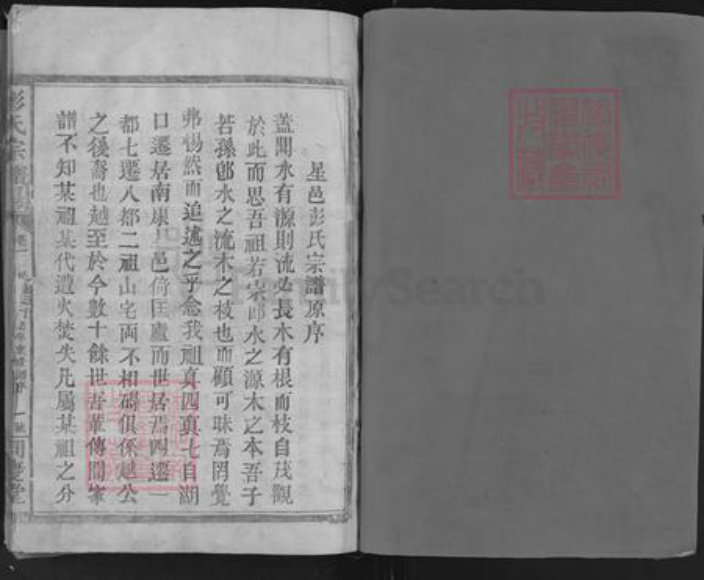 星邑彭氏宗譜原序
蓋聞水有源則流必長木有根而枝自茂觀
於此而思吾祖若宗卽水之源木之本吾子
若孫卽水之流木之枝也而顧可昧焉罔覺
弗惕然而追述之乎念我祖真四真七自湖
口遷居南康星邑倚匡廬而世居焉四遷一
都七遷八都二祖山宅兩不相礙俱係越公
之後裔也越至於今數十餘世吾輩傳聞家
譜不知某祖某代遭火焚失凡屬某祖之分
彭氏宗譜
卷一
FamilySearch